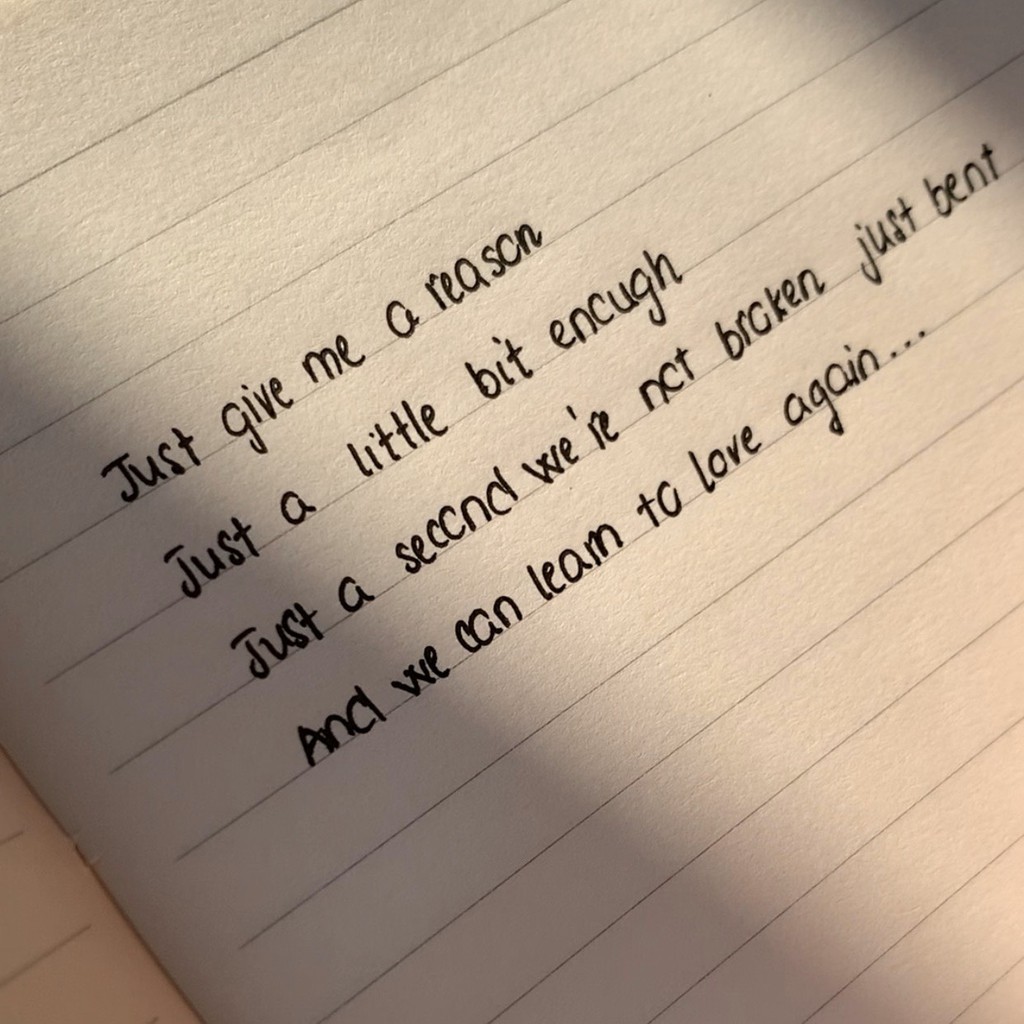 Just give me a reason
Just a little bit enough
Just a second we're not broken just bent
And we can learn to love again...